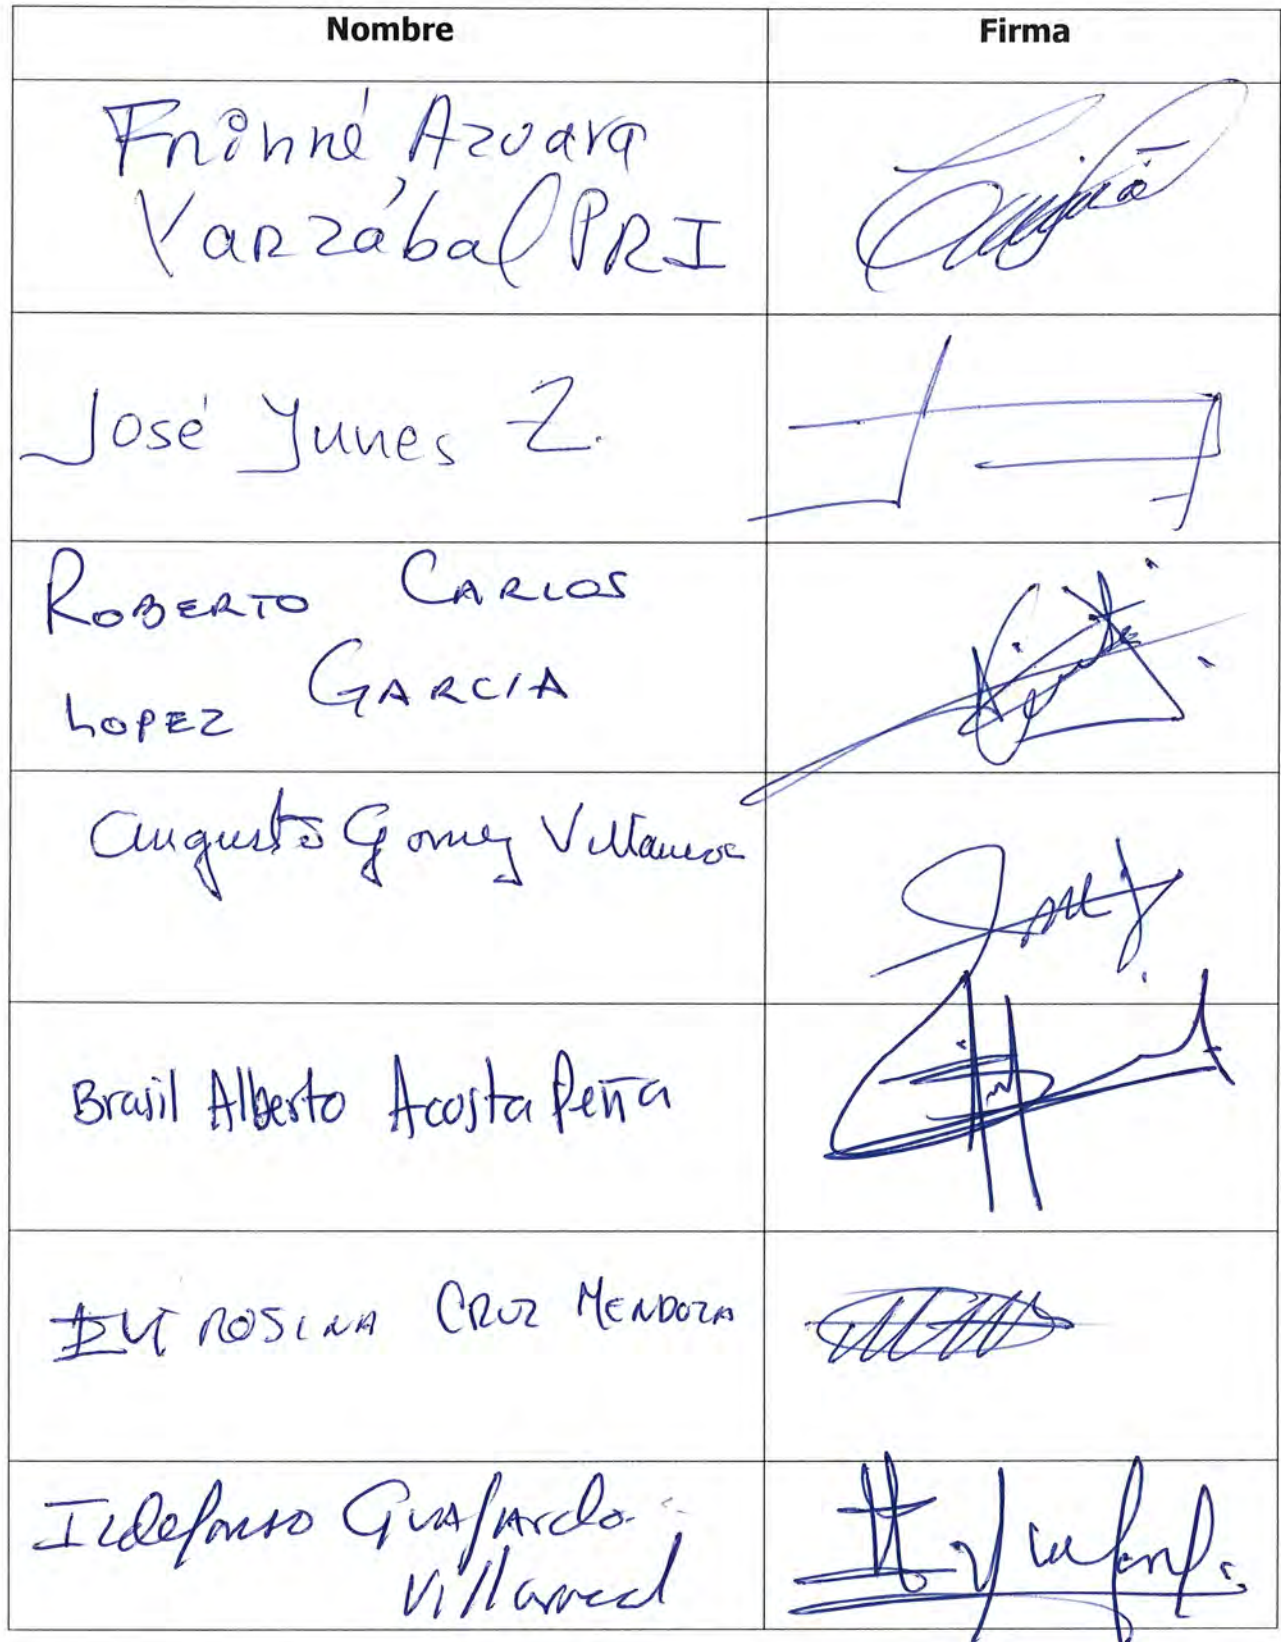 Nombre Firma
Frinné Azuara
Yarzábal PRI
José Yunes Z.
ROBERTO CARLOS
LOPEZ GARCIA
Augusto Gomez Villanueva
Brasil Alberto Acosta Peña
ROSINA CRUZ MENDOZA
Ildefonso Guajardo
Villarreal